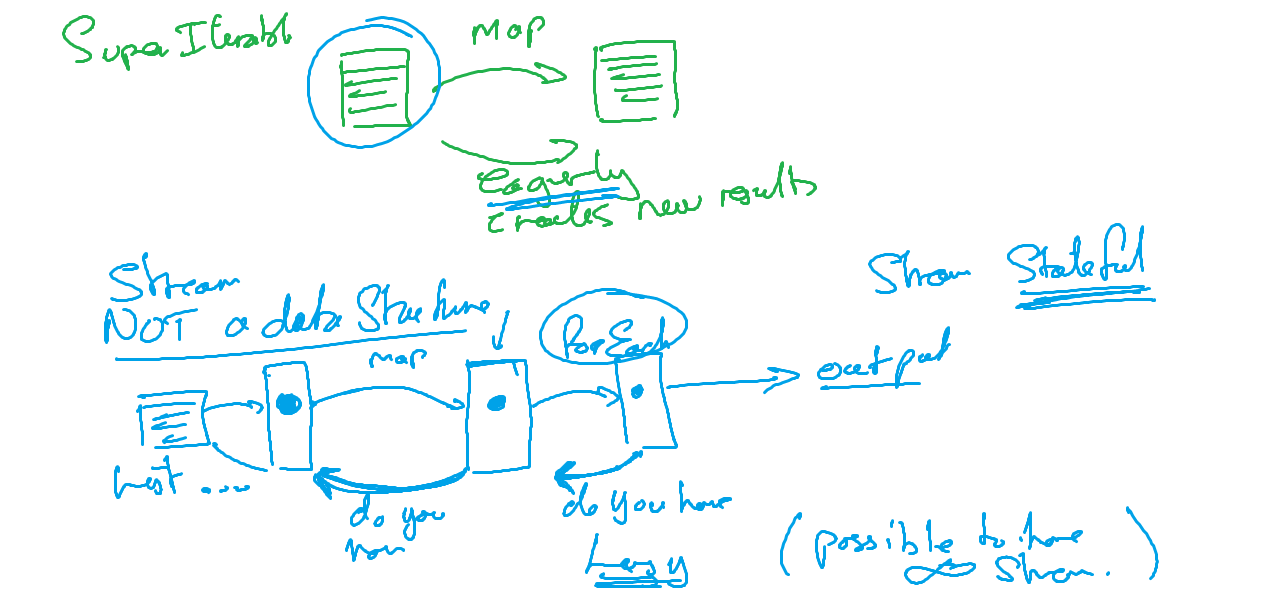 Super Iterable
Map
Eagerly
creates new results
Stream
NOT a data Structure
Stream Stateful
Map
ForEach
output
List ....
do you
have
do you have
Lazy
(possible to have
∞ Stream.)